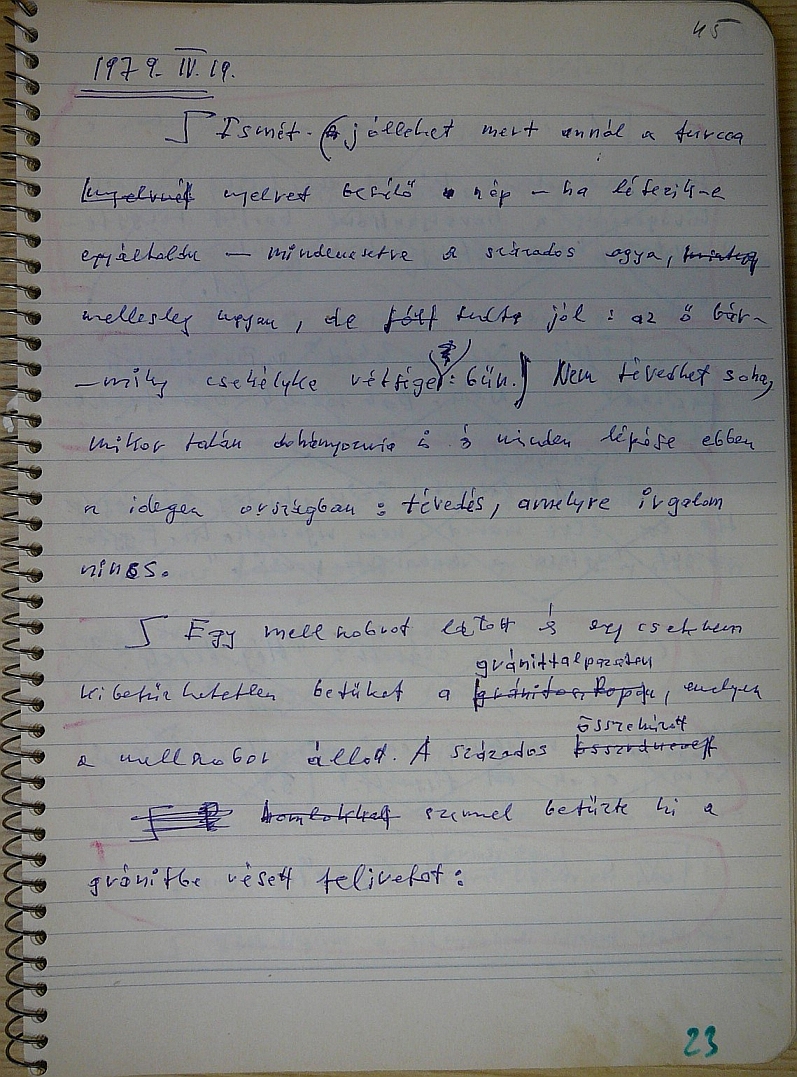 45
1979. IV. 19.
Ismét. (jóllehet mert annál a furcsa
nyelvet beszélő nép – ha létezik-e
egyáltalán — mindenesetre a százados agya,
mellesleg ugyan, de jól : az ő bár-
–mily csekélyke vétsége : bűn.) Nem tévedhet soha,
mikor talán dohányoznia is minden lépése ebben
idegen országban : tévedés, amelyre irgalom
nincs.
Egy mellszobrot látott és egy csaknem
gránittalpazaton
kibetűzhetetlen betűket a gránitoszlopán, amelyen
összehúzott
a mellszobor állott. A százados
homlokkal szemmel betűzte ki a
gránitbe vésett feliratot :
23